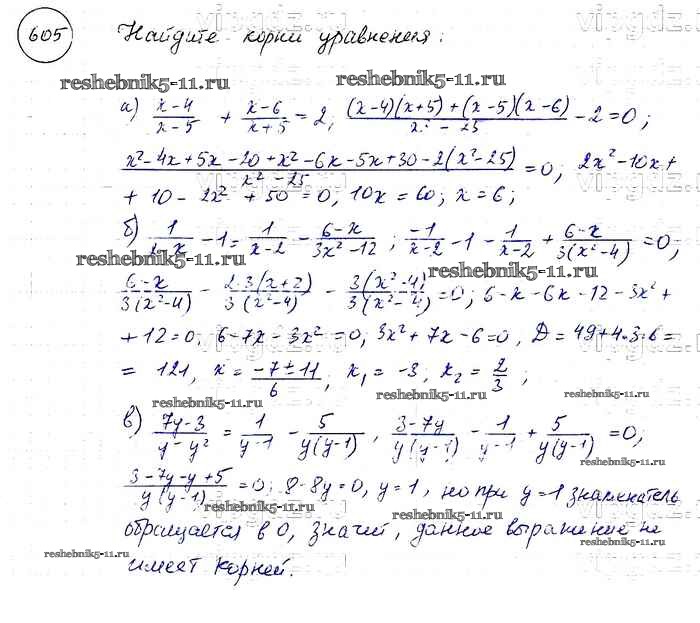 605 Найдите корни уравнения:
reshebnik5-11.ru reshebnik5-11.ru
а) (x-4)/(x-5) + (x-6)/(x+5) = 2, ((x-4)(x+5) + (x-5)(x-6))/(x² - 25) - 2 = 0;
(x² - 4x + 5x - 20 + x² - 6x - 5x + 30 - 2(x² - 25))/(x² - 25) = 0; 2x² - 10x +
+ 10 - 2x² + 50 = 0, 10x = 60; x = 6;
б) 1/(2-x) - 1 = 1/(x-2) - (6-x)/(3x² - 12); -1/(x-2) - 1 - 1/(x-2) + (6-x)/(3(x² - 4)) = 0,
reshebnik5-11.ru reshebnik5-11.ru
(6-x)/(3(x² - 4)) - (2·3(x+2))/(3(x² - 4)) - (3(x² - 4))/(3(x² - 4)) = 0; 6 - x - 6x - 12 - 3x² +
+ 12 = 0, 6 - 7x - 3x² = 0, 3x² + 7x - 6 = 0, D = 49 + 4·3·6 =
= 121, x = (-7 ± 11)/6, x₁ = -3, x₂ = 2/3;
reshebnik5-11.ru reshebnik5-11.ru
в) (7y-3)/(y - y²) = 1/(y-1) - 5/(y(y-1)), (3-7y)/(y(y-1)) - 1/(y-1) + 5/(y(y-1)) = 0,
(3 - 7y - y + 5)/(y(y-1)) = 0; 8 - 8y = 0, y = 1, но при y = 1 знаменатель
reshebnik5-11.ru reshebnik5-11.ru
обращается в 0, значит, данное выражение не
reshebnik5-11.ru reshebnik5-11.ru
имеет корней.